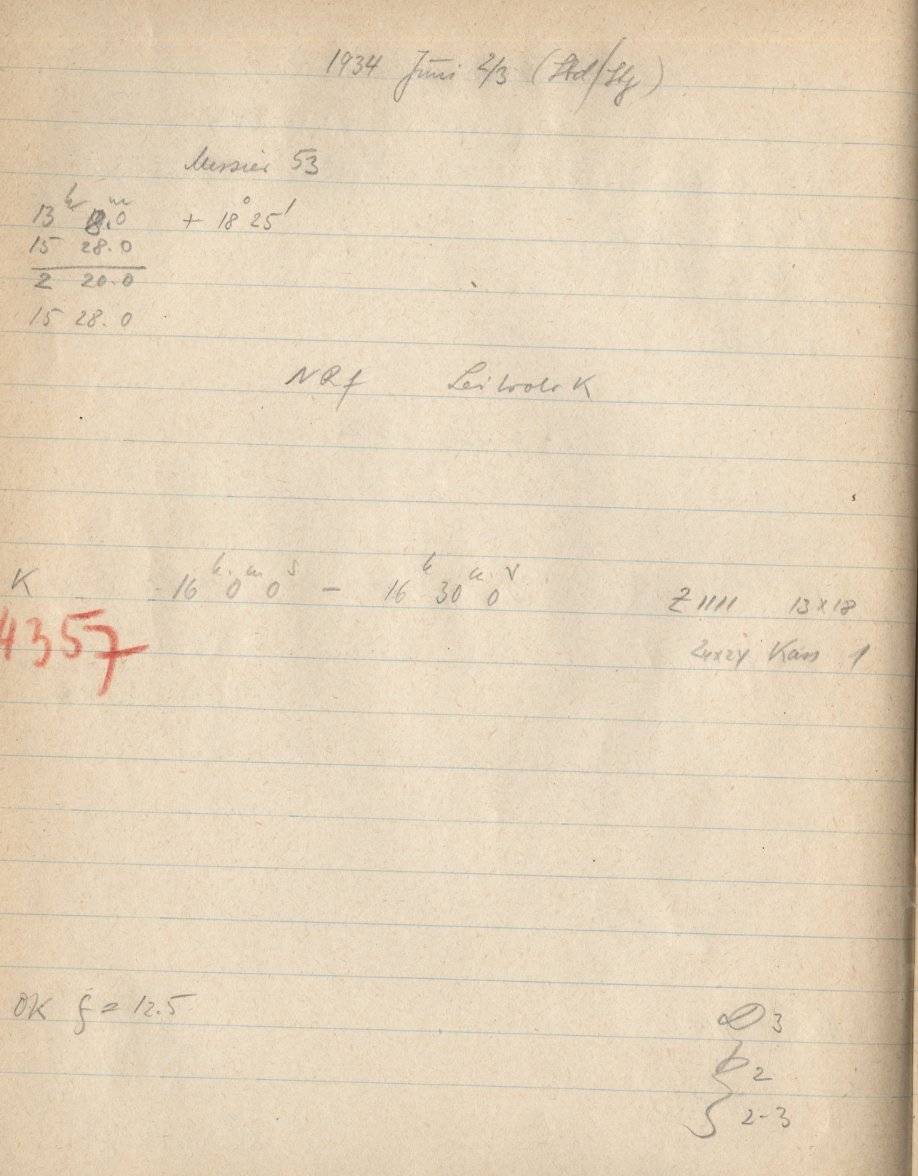 1934 Juni 2/3 (Std/Hg)
Messier 53
13h 8.0m + 18° 25'
15 28.0
2 20.0
15 28.0
NRf K
K 16h 0m 0s – 16h 30m 0s Z 1111 13x18
4357 24x24 Kass 1
OK ξ = 12.5
3
2
2-3